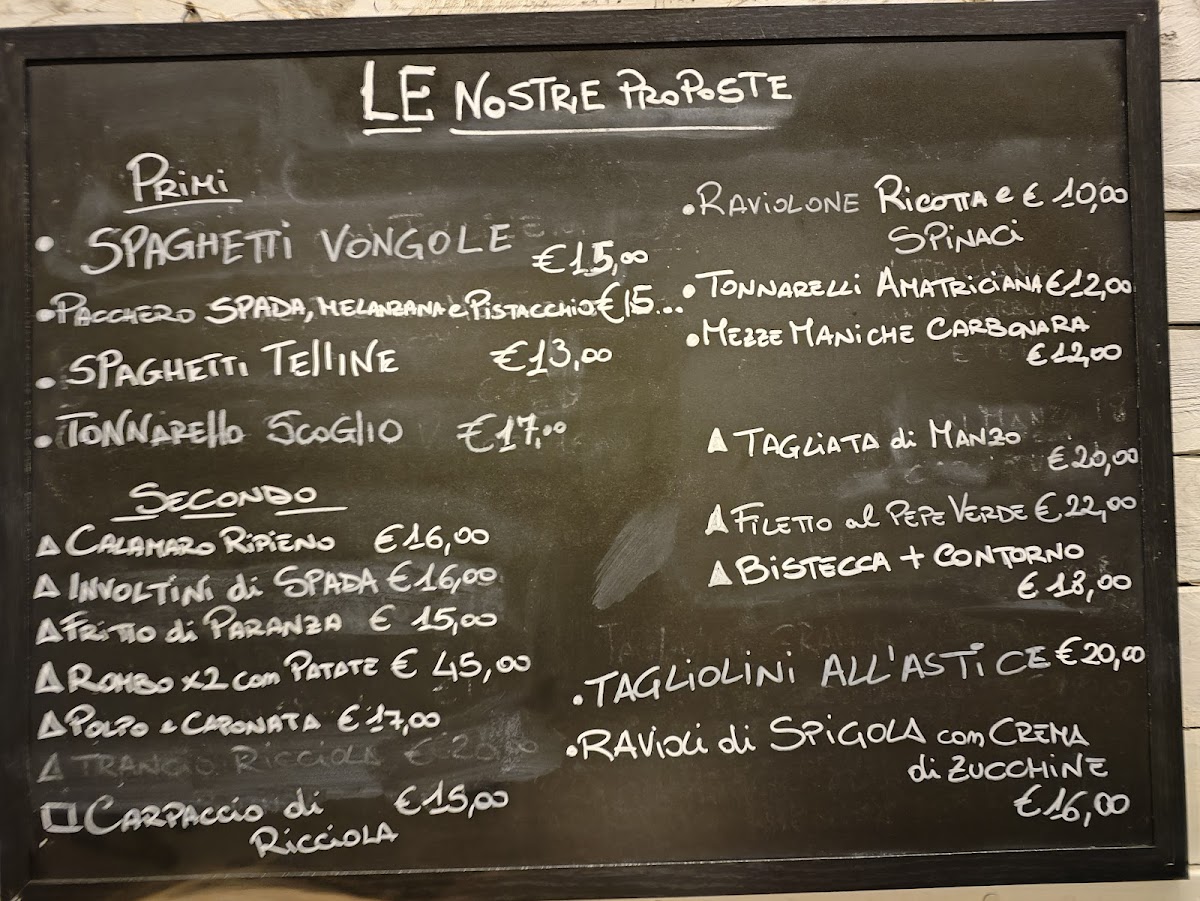 LE NOSTRE PROPOSTE
PRIMI
• SPAGHETTI VONGOLE €15,00
• PACCHERO SPADA, MELANZANA e PISTACCHIO €15...
• SPAGHETTI TELLINE €13,00
• TONNARELLO SCOGLIO €17,00
SECONDO
CALAMARO RIPIENO €16,00
INVOLTINI di SPADA €16,00
FRITTO di PARANZA € 15,00
ROMBO x2 con PATATE € 45,00
POLPO e CAPONATA €17,00
TRANCIO RICCIOLA €20,00
CARPACCIO di €15,00
RICCIOLA
• RAVIOLONE RICOTTA e € 10,00
SPINACI
• TONNARELLI AMATRICIANA €12,00
• MEZZE MANICHE CARBONARA
€12,00
TAGLIATA di MANZO
€20,00
FILETTO al PEPE VERDE €22,00
BISTECCA + CONTORNO
€ 18,00
• TAGLIOLINI ALL'ASTICE €20,00
• RAVIOLI di SPIGOLA con CREMA
di ZUCCHINE
€16,00